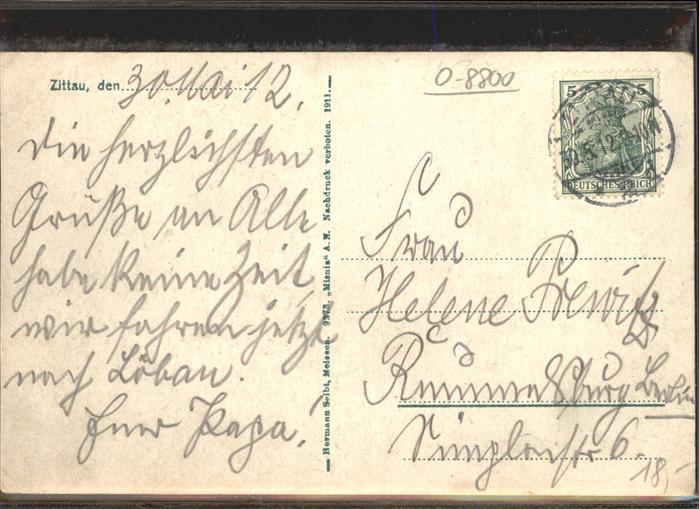 Zittau, den 30. Mai 12.
Die herzlichsten
Grüße an Alle
habe keine Zeit,
wir fahren jetzt
nach Löbau.
Euer Papa.
Hermann Seibt, Meissen. 9373. „Misnia" A. N. Nachdruck verboten. 1911.
O-8800
5 5
DEUTSCHES REICH
Frau
Helene
Rummelsburg Berlin
6
18,-